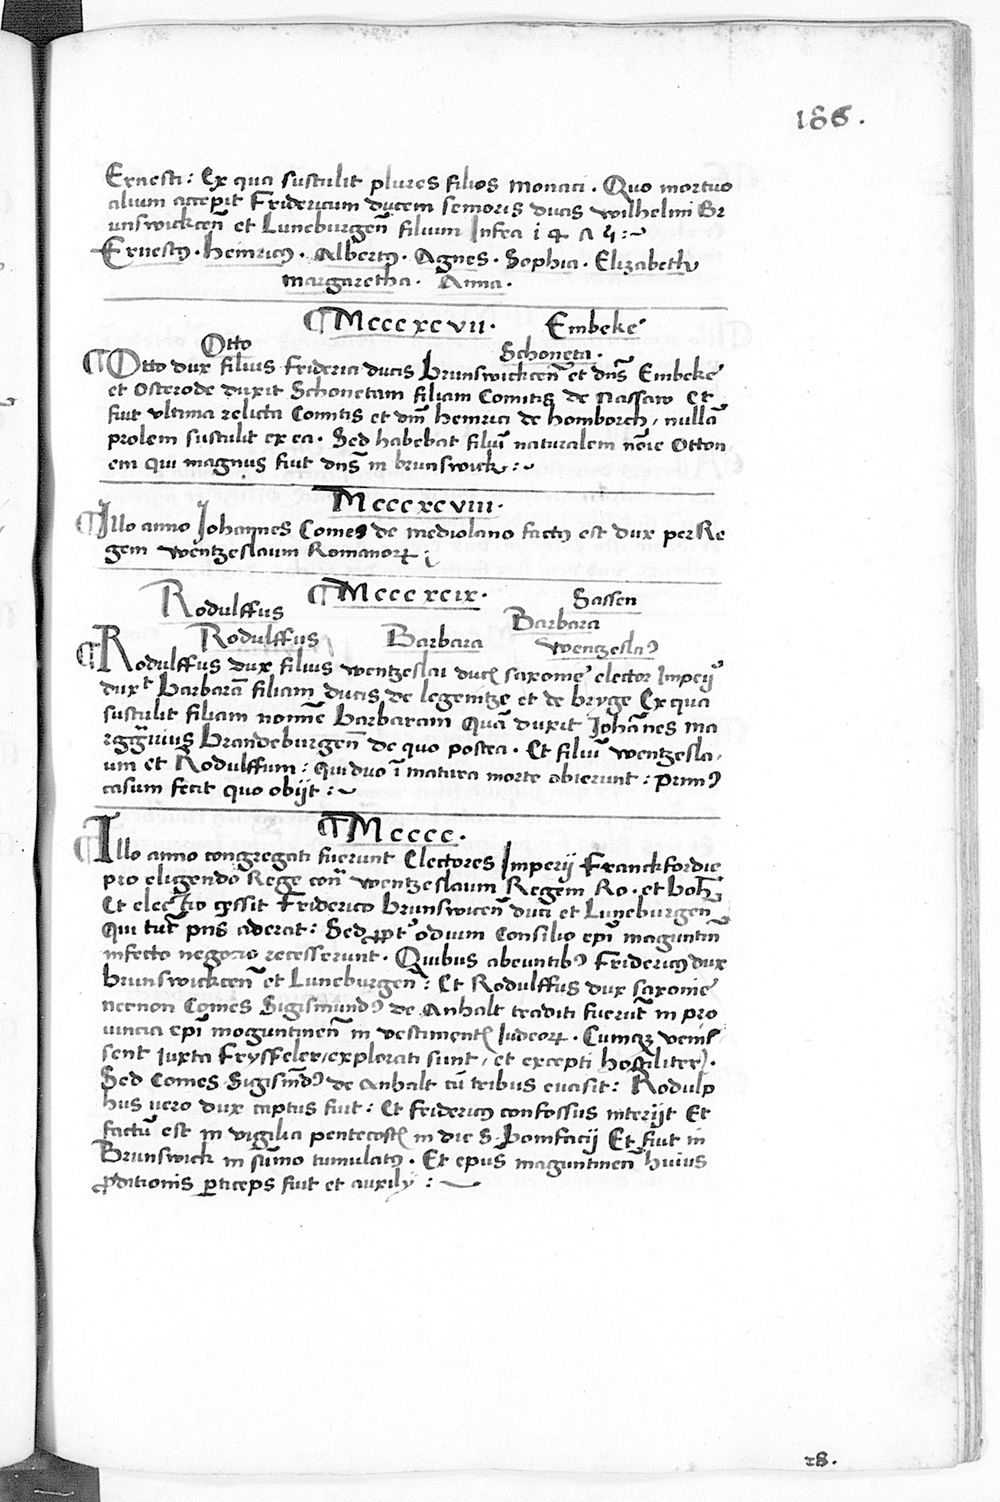 186.
Ernesti: Ex qua sustulit plures filios Monaci. Quo mortuo
alium accepit Fridericum ducem senioris ducis wilhelmi Br
unswickceñ et Luneburgeñ filium Infra 1 4 Λ 5 :~
Ernestꝰ. heinricꝰ. Albertꝰ. Agnes. Sophia. Elizabeth
margaretha. Anna.
¶ Mcccxcvii. Embeke
Otto Schoneta.
¶ Otto dux filius friderici ducis Brunswickceñ et dñs Embeke
et Osterode duxit Schonetam filiam Comitis de Nassaw Et
fuit vltima relicta Comitis et dñi heinrici de homborch, nullā
prolem sustulit ex ea. Sed habebat filiū naturalem nōie Otton
em qui magnus fuit dñs in brunswick :~
Mcccxcviii.
¶ Illo anno Johannes Comes de mediolano factꝰ est dux per Re
gem wentzeslaum Romanorꝝ
¶ Mcccxcix.
Rodulffus Sassen
Barbara
Rodulffus Barbara wentzeslaꝰ
¶ Rodulffus dux filius wentzeslai ducꝭ saxonie elector Imperij
duxᵗ Barbarā filiam ducis de legenitze et de bryge Ex qua
sustulit filiam nomīe Barbaram Quā duxit Johānes ma
rggᵃuius Brandeburgeñ de quo postea. Et filiū wentzesla,
um et Rodulffum: qui duo ī matura morte obierunt: primꝰ
casum fecit quo obijt :~
¶ Mcccc.
¶ Illo anno congregati fuerunt Electores Imperij Franckfordie
pro eligendo Rege contᵃ wentzeslaum Regem Ro. et boh̄
Et electio cessit Friderico brunswiceñ duci et Luneburgeñ
Qui tūc pñs aderat: Sed ꝓptᵉʳ odium Consilio epī maguntiñ
infecto negocio recesserunt. Quibus abeuntibꝰ Fridericꝰ dux
brunswickceñ et Luneburgeñ: Et Rodulffus dux saxonie
necnon Comes Sigismundꝰ de Anhalt traditi fuerūt in pro
uincia epī moguntineñ in vestimentꝭ Iudeorꝝ. Cumqꝫ venis,
sent Iuxta Frysseler, explorati sunt, et excepti hostiliter.
Sed Comes Sigism̄dꝰ de Anhalt cū tribus euasit: Rodulp
hus uero dux captus fuit: Et fridericꝰ confossus interijt Et
factū est in vigilia pentecostꝭ in die S. Bonifacij Et fuit in
Brunswick in sūmo tumulatꝰ. Et epus maguntineñ huius
ꝓditionis ꝑticeps fuit et auxily :~
28.